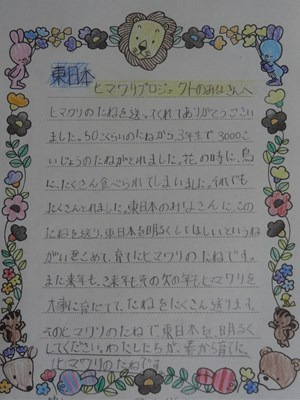 東日本
ヒマワリプロジェクトのみなさんへ
ヒマワリのたねを送ってくれてありがとうござい
ました。50こくらいのたねから3年生で3000こ
いじょうのたねがとれました。花の時に、鳥
に、たくさん食べられてしまいました。それでも
たくさんとれました。東日本のみなさんに、この
たねを送り、東日本を明るくしてほしいというね
がいをこめて、育てたヒマワリのたねです。
また来年も、さ来年もその次の年もヒマワリを
大事に育てて、たねをたくさん送ります。
そのヒマワリのたねで東日本を、明るく
してください。わたしたちが、春から育てた、
ヒマワリのたねです。